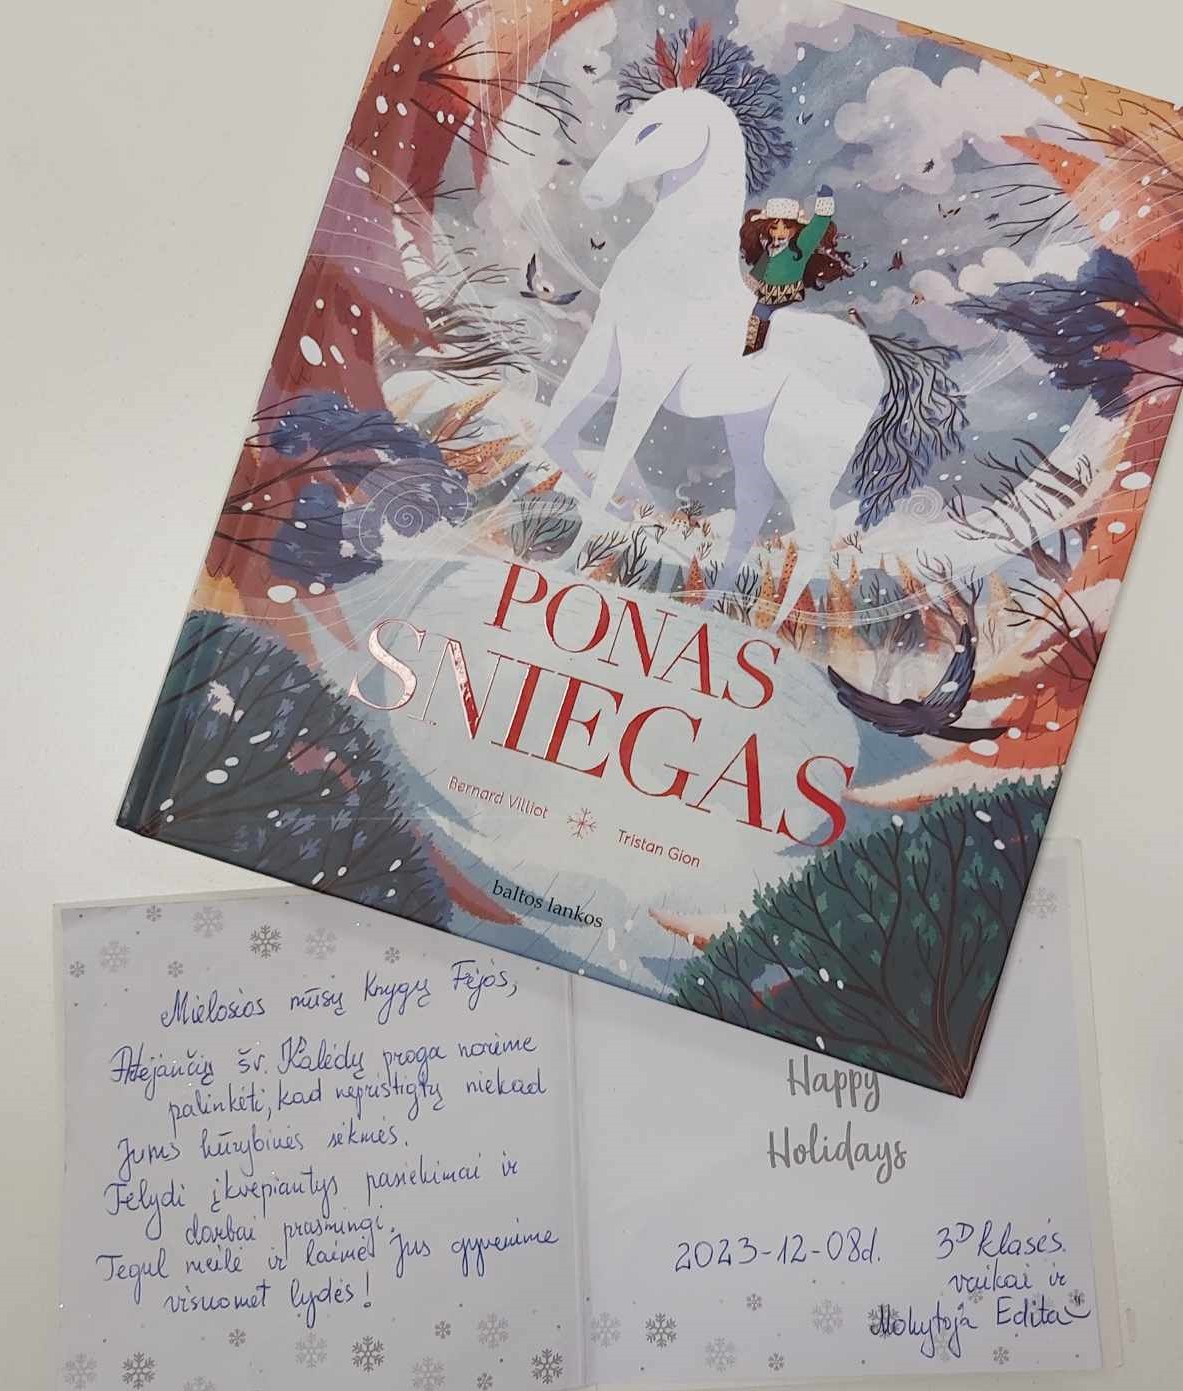 PONAS
SNIEGAS
Bernard Villiot
Tristan Gion
baltos lankos
Mielosios mūsų Knygų Fėjos,
Atėjančių šv. Kalėdų proga norime
palinkėti, kad nepristigtų niekad
Jums kūrybinės sėkmės.
Telydi įkvepiantys pasiekimai ir
darbai prasmingi.
Tegul meilė ir laimė Jus gyvenime
visuomet lydės!
Happy
Holidays
2023-12-08d. 3D klasės
vaikai ir
Mokytoja Edita